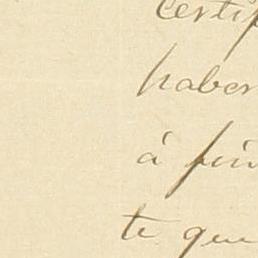 certif
haber
à fin
te que